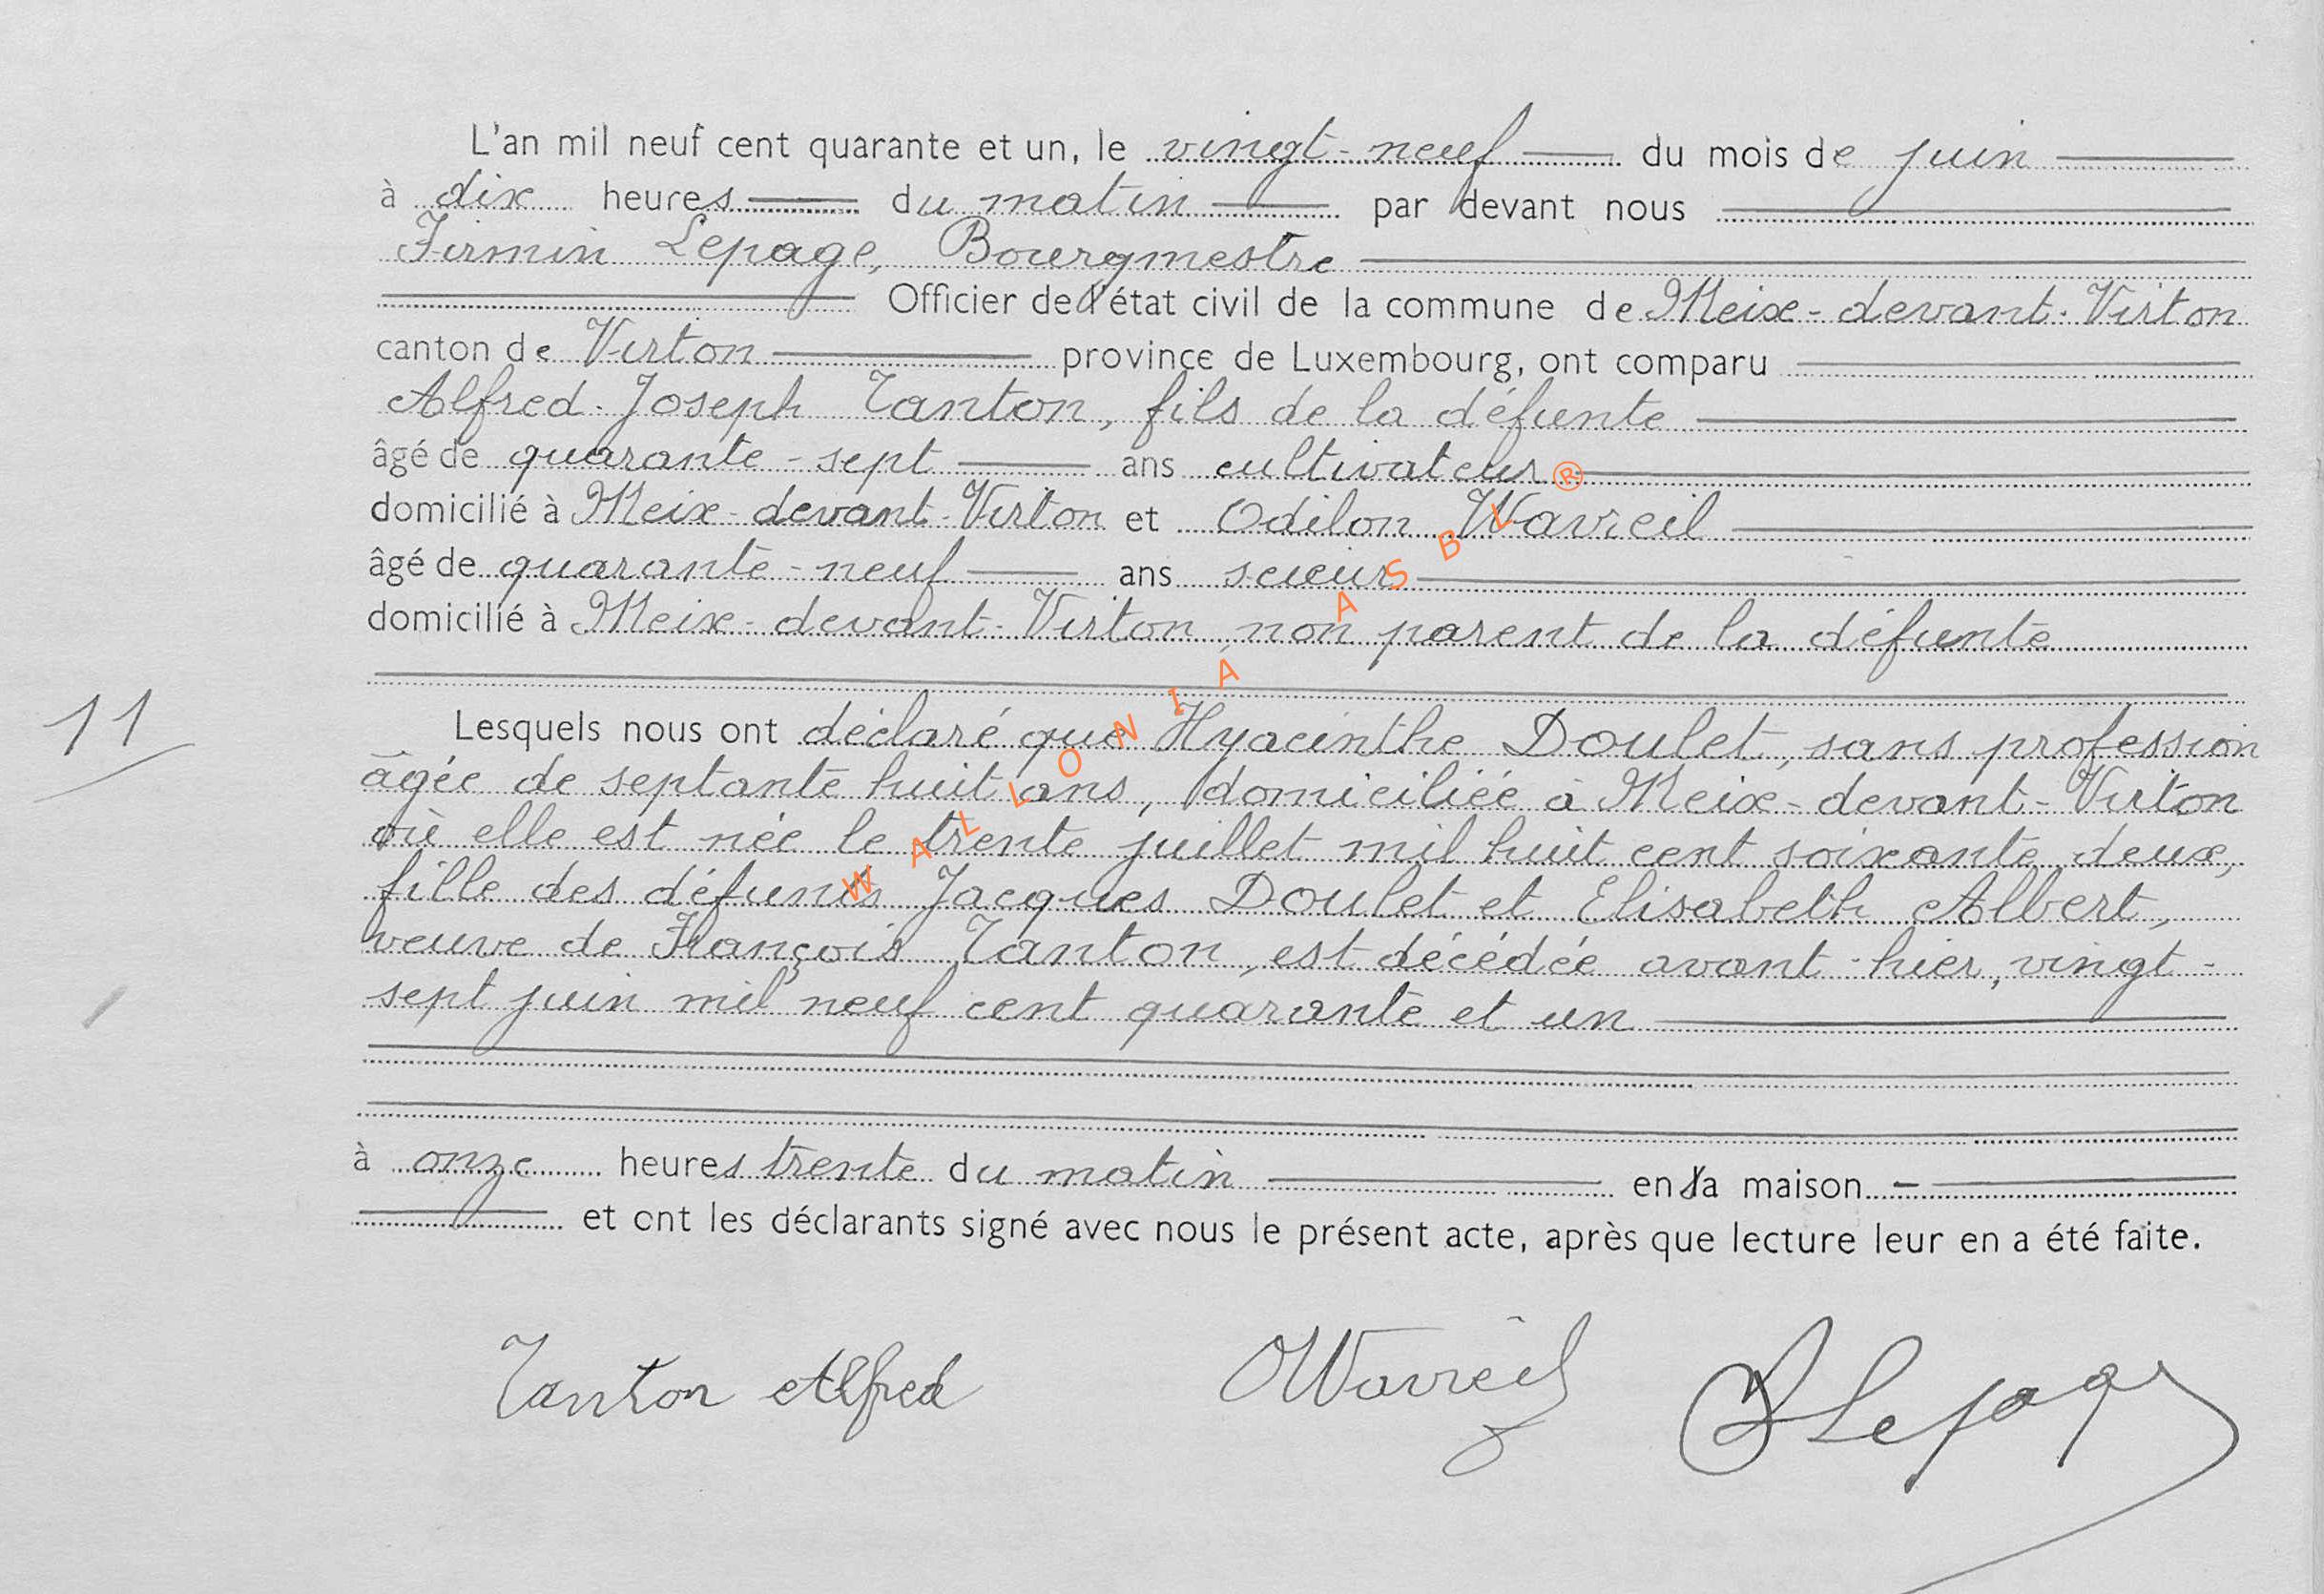 L'an mil neuf cent quarante et un, le vingt-neuf du mois de juin
à dix heures du matin par devant nous
Firmin Lepage, Bourgmestre
Officier de l'état civil de la commune de Meix-devant-Virton
canton de Virton province de Luxembourg, ont comparu
Alfred-Joseph Tanton, fils de la défunte
âgé de quarante-sept ans cultivateur ®
domicilié à Meix-devant-Virton et Odilon Wavreil
âgé de quarante-neuf ans scieur
domicilié à Meix-devant-Virton, non parent de la défunte
11
Lesquels nous ont déclaré que Hyacinthe Doulet, sans profession
âgée de septante huit ans, domiciliée à Meix-devant-Virton
où elle est née le trente juillet mil huit cent soixante deux,
fille des défunts Jacques Doulet et Elisabeth Albert,
veuve de François Tanton, est décédée avant-hier, vingt-
sept juin mil neuf cent quarante et un
à onze heures trente du matin en sa maison
et ont les déclarants signé avec nous le présent acte, après que lecture leur en a été faite.
Tanton Alfred OWavreil FLepage
WALLONIA ASBL